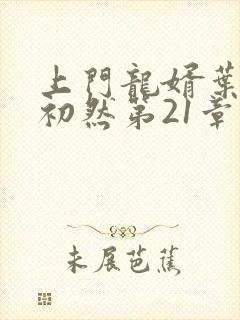 上門龍婿葉
初然第21章
未展芭蕉